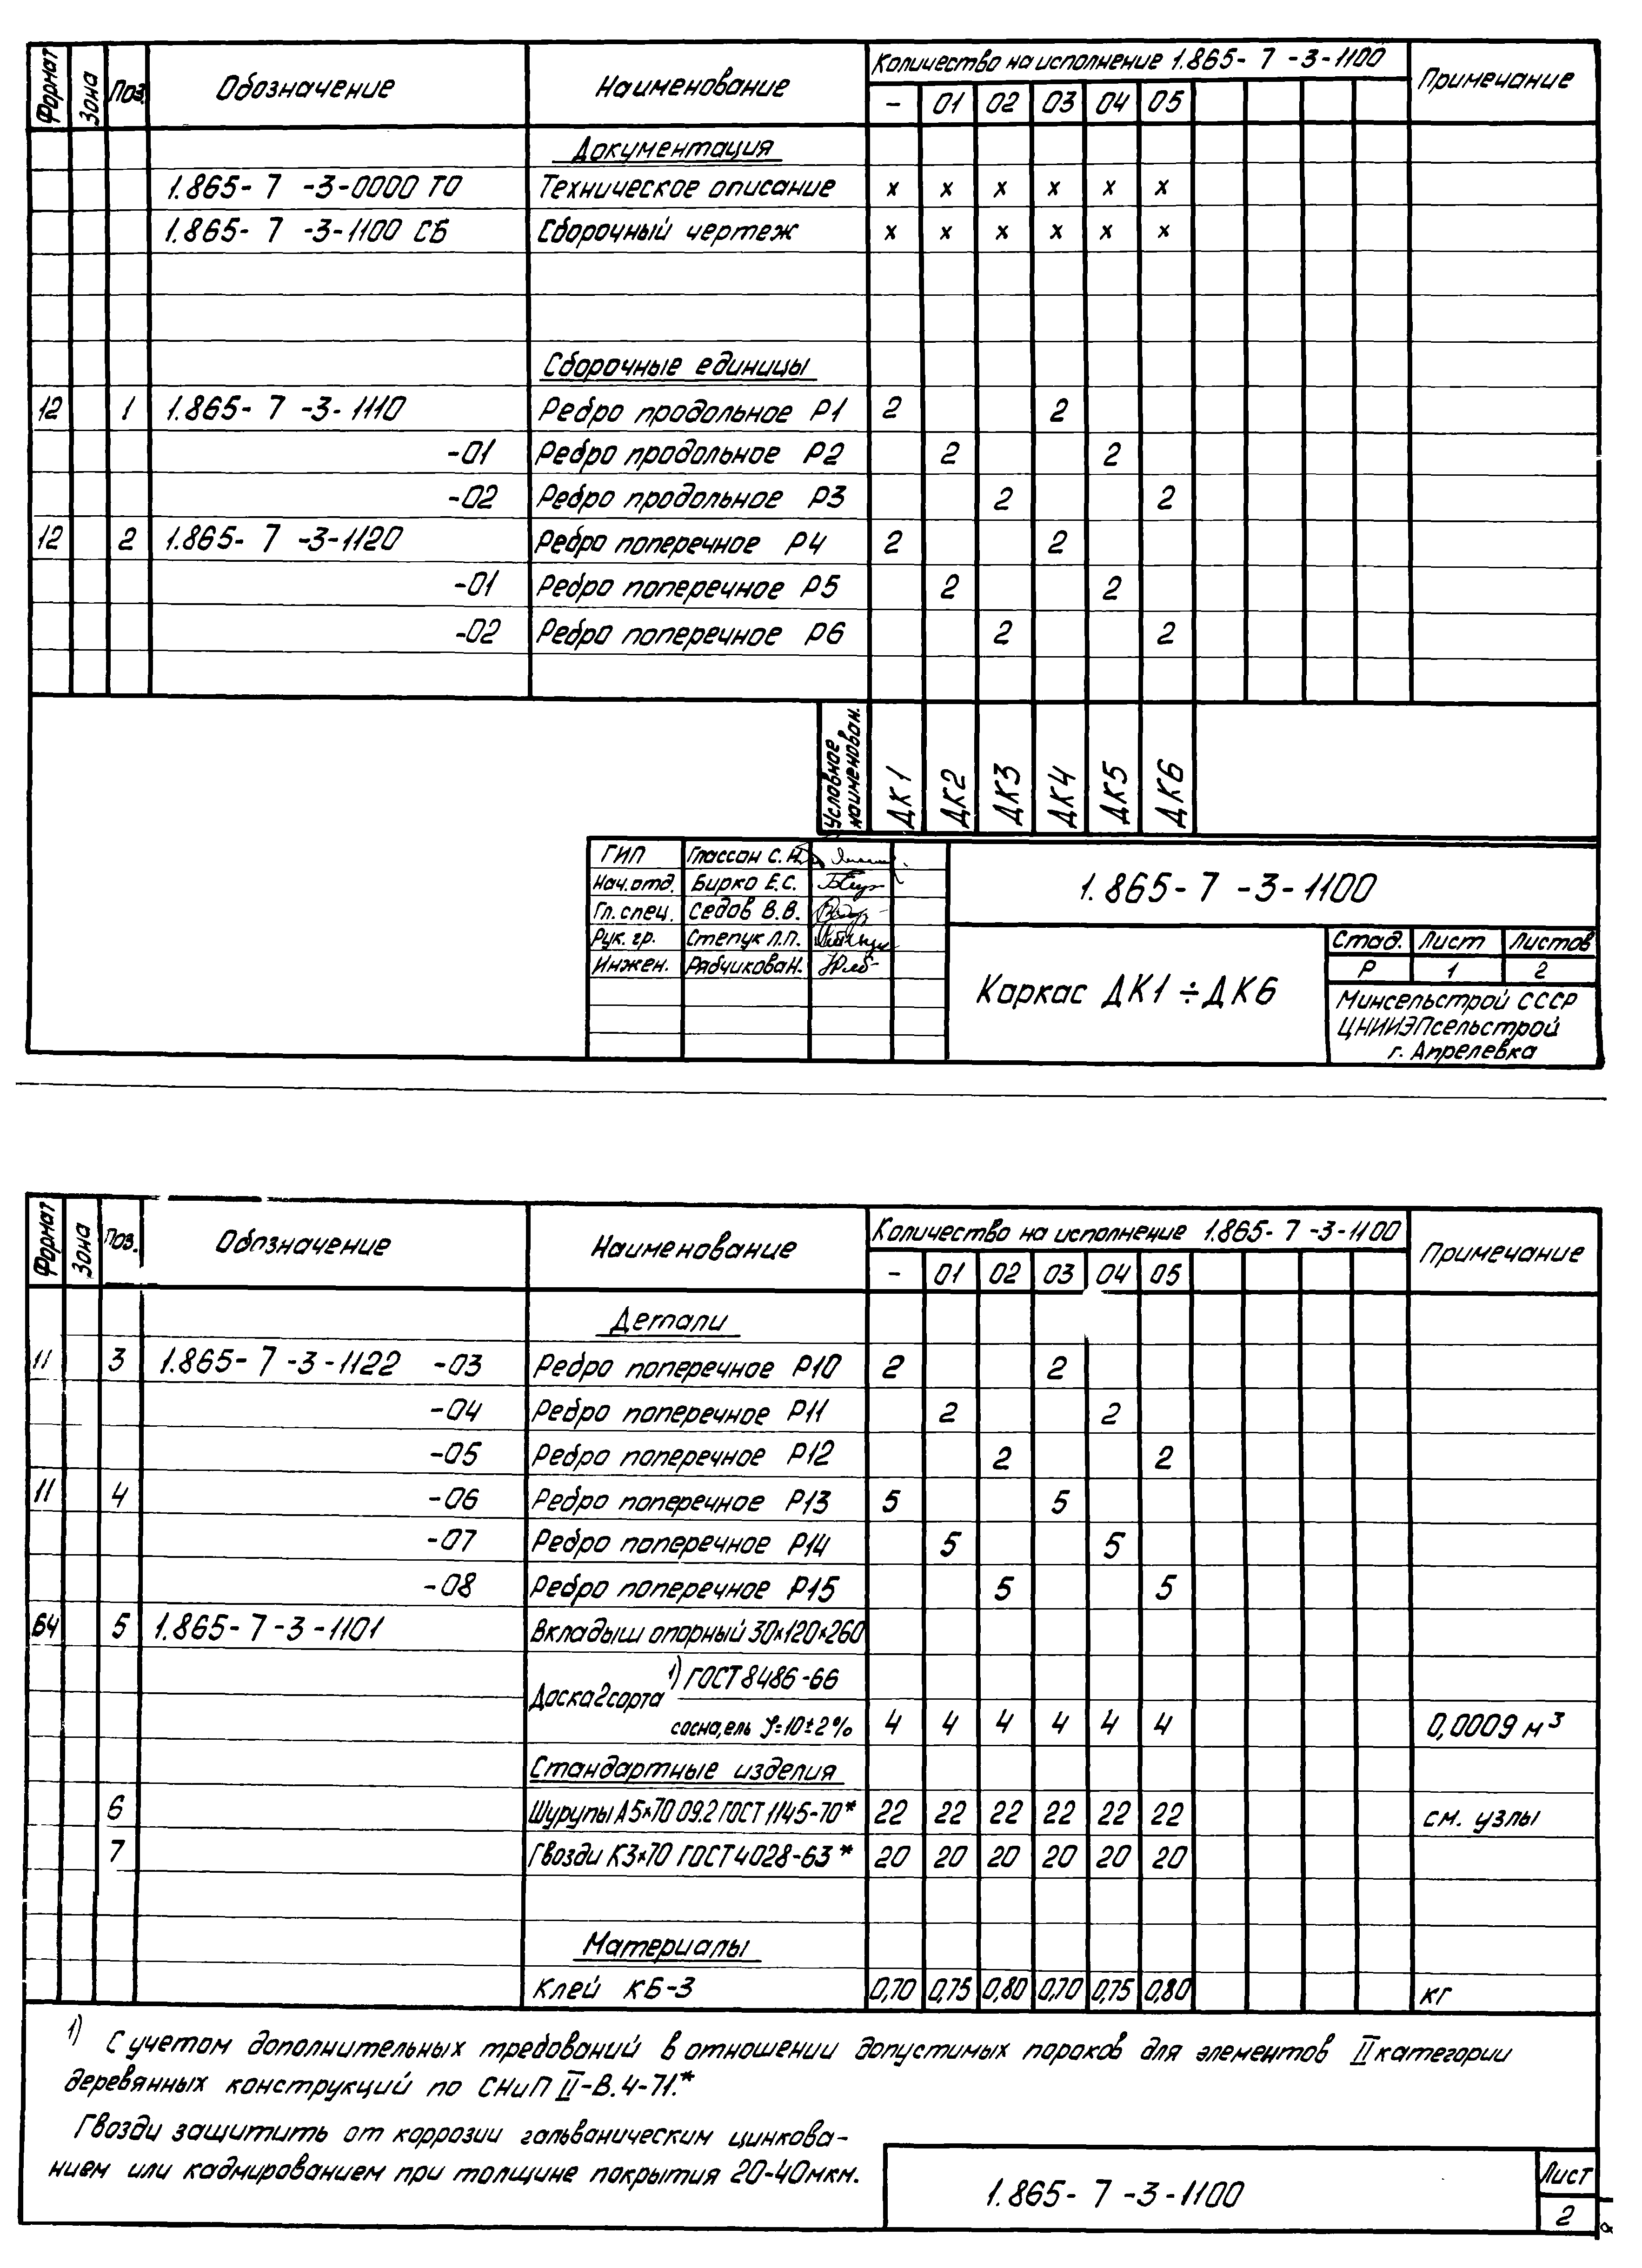 Формат Зона Поз. Обозначение Наименование Количество на исполнение 1.865- 7 -3-1100 Примечание
- 01 02 03 04 05
Документация
1.865- 7 -3-0000 ТО Техническое описание х х х х х х
1.865- 7 -3-1100 СБ Сборочный чертеж х х х х х х
Сборочные единицы
12 1 1.865- 7 -3-1110 Ребро продольное Р1 2 2
-01 Ребро продольное Р2 2 2
-02 Ребро продольное Р3 2 2
12 2 1.865- 7 -3-1120 Ребро поперечное Р4 2 2
-01 Ребро поперечное Р5 2 2
-02 Ребро поперечное Р6 2 2
Условное наименован. ДК1 ДК2 ДК3 ДК4 ДК5 ДК6
ГИП Глассон С.
Нач.отд. Бирко Е.С.
Гл. спец. Седов В.В.
Рук. гр. Степук Л.П.
Инжен. Рябчикова Н.
1.865- 7 -3-1100
Каркас ДК1 ÷ ДК6
Стад. Лист Листов
Р 1 2
Минсельстрой СССР
ЦНИИЭПсельстрой
г. Апрелевка
Формат Зона Поз. Обозначение Наименование Количество на исполнение 1.865- 7 -3-1100 Примечание
- 01 02 03 04 05
Детали
11 3 1.865- 7 -3-1122 -03 Ребро поперечное Р10 2 2
-04 Ребро поперечное Р11 2 2
-05 Ребро поперечное Р12 2 2
11 4 -06 Ребро поперечное Р13 5 5
-07 Ребро поперечное Р14 5 5
-08 Ребро поперечное Р15 5 5
БЧ 5 1.865- 7 -3-1101 Вкладыш опорный 30×120×260
Доска 2 сорта 1) ГОСТ 8486-66
сосна, ель φ=10±2% 4 4 4 4 4 4 0,0009 м³
Стандартные изделия
6 Шурупы А5×70 09.2 ГОСТ 1145-70* 22 22 22 22 22 22 см. узлы
7 Гвозди К3×70 ГОСТ 4028-63* 20 20 20 20 20 20
Материалы
Клей КБ-3 0,70 0,75 0,80 0,70 0,75 0,80 кг
1) С учетом дополнительных требований в отношении допустимых пороков для элементов II категории
деревянных конструкций по СНиП II-В.4-71.*
Гвозди защитить от коррозии гальваническим цинкова-
нием или кадмированием при толщине покрытия 20-40мкм.
1.865- 7 -3-1100
Лист
2